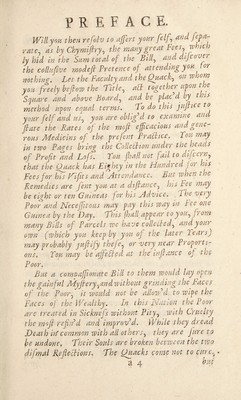 PREFACE.
Will you then resolv to assert your self, and sepa-
rate, as by Chymistry, the many great Fees, which
ly hid in the Sum total of the Bill, and discover
the collusive modest Pretence of attending you for
nothing. Let the Faculty and the Quack, on whom
you freely bestow the Title, act together upon the
Square and above Board, and be plac'd by this
method upon equal terms. To do this justice to
your self and us, you are oblig'd to examine and
state the Rates of the most efficacious and gene-
rous Medicins of the present Practice. You may
in two Pages bring the Collection under the heads
of Profit and Loss. You shall not fail to discern,
that the Quack has Eighty in the Hundred for his
Fees for his Visits and Attendance. But when the
Remedies are sent you at a distance, his Fee may
be eight or ten Guineas for his Advice. The very
Poor and Necessitous may pay this way in Fee one
Guinea by the Day. This shall appear to you, from
many Bills of Parcels we have collected, and your
own (which you keep by you of the later Years)
may probably justify these, or very near Proporti-
ons. You may be affected at the instance of the
Poor.
But a compassionate Bill to them would lay open
the gainful Mystery, and without grinding the Faces
of the Poor, it would not be allow'd to wipe the
Faces of the Wealthy. In this Nation the Poor
are treated in Sickness without Pity, with Cruelty
the most refin'd and improv'd. While they dread
Death in common with all others, they are sure to
be undone. Their Souls are broken between the two
dismal Reflections. The Quacks come not to cure,
a 4 but